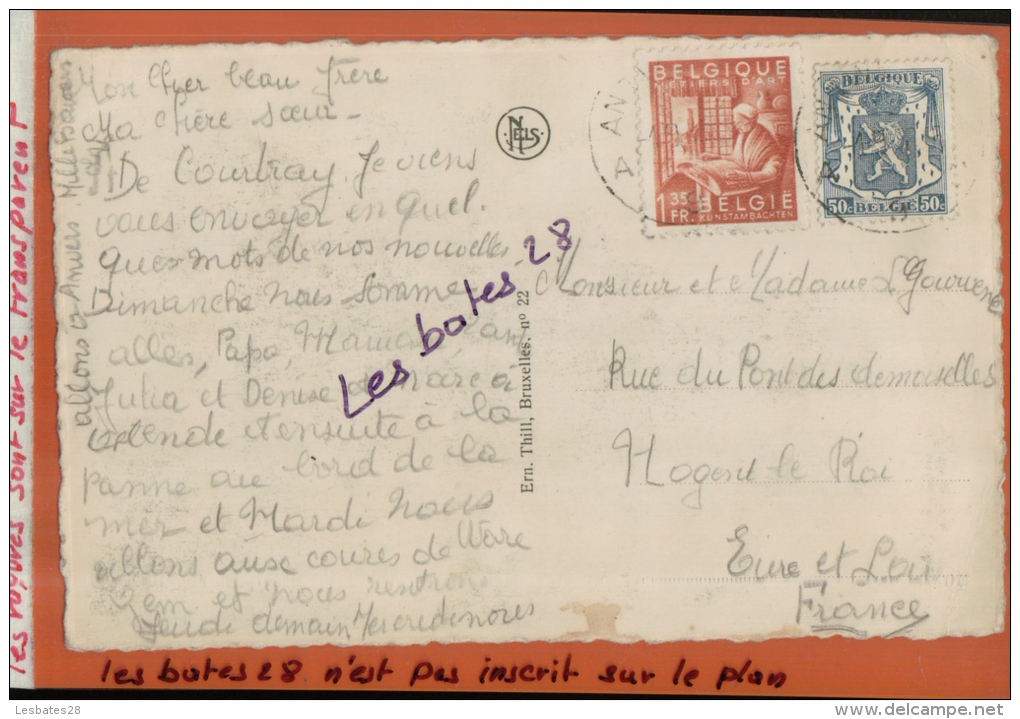 Mon Cher beau frère
Ma Chère sœur -
De Courtray Je viens
vous envoyer en quel.
ques mots de nos nouvelles.
Dimanche nous sommes
allés, Papa, Maman
Julia et Denise à
Ostende et ensuite à la
panne au bord de la
mer et Mardi nous
allons aux courses de Ware
gem et nous rentrons
Jeudi demain Mercredi nous
allons à Anvers. Mille baisers
NELS
Ern. Thill, Bruxelles. n° 22
BELGIQUE
METIERS D'ART
1,35 BELGIË
FR. KUNSTAMBACHTEN
BELGIQUE
50c BELGIE 50c
Monsieur et Madame L Gouvene
Rue du Pont des demoiselles
Nogent le Roi
Eure et Loir
France
Les bates 28
les rayures sont sur le transparent
les bates 28 n'est pas inscrit sur le plan
Lesbates28
delcampe.net